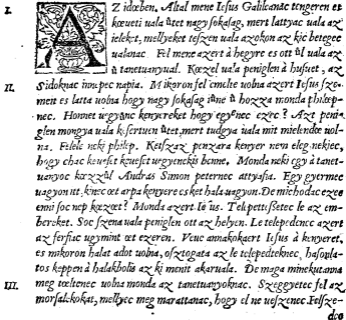 I. AZ idœben, Altal mene Iesus Galileanac tengeren et
kœueti uala űtet nagy sokasag, mert lattyac uala az
ieleket, mellyeket teszen uala azokon az kic betegec
ualanac. Fel mene azert à hegyre es ott űl uala az
ű tanetuanyual. Kœzel uala peniglen à husuet, az
II. Sidoknac innepec napia. Mikoron fel emelte uolna azert Iesus sze-
meit es latta uolna hogy nagy sokasag iűne ű hozza monda philep-
nec. Honnet uegyűnc kenyereket hogy egyenec ezec? Azt peni-
glen mongya uala kesertuen űtet, mert tudgya uala mit mielendœ uol-
na. Felele neki philep. Ketszaz penzara kenyer nem eleg nekiec,
hogy chac keueset keueset uegyenekis benne. Monda neki egy à tanet-
uanyoc kœzzűl András Simon peternec attyafia. Egy gyermec
uagyon itt, kinec œt arpa kenyere es ket hala uagyon. De michodac ezec
emi soc nep kœzœt? Monda azert Iesus. Telepettessetec le az em-
bereket. Soc szena uala peniglen ott az helyen. Le telepedenec azert
az ferfiac ugymint œt ezeren. Veue annakokaert Iesus à kenyeret,
es mikoron halat adot uolna, osztogata az le telepedteknec, hasonla-
tos keppen à halakbolis az ki menit akaruala. De maga minekutanna
III. meg tœltenec uolna monda az tanetuanyoknac. Szeggyetec fel az
morsalekokat, mellyec meg marattanac, hogy el ne uesszenec. Felsze-
dec